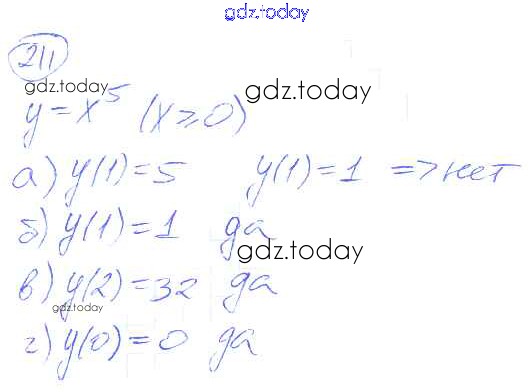 gdz.today
211
gdz.today
gdz.today
y=x⁵ (x≥0)
а) y(1)=5 y(1)=1 => нет
б) y(1)=1 да
gdz.today
в) y(2)=32 да
gdz.today
г) y(0)=0 да